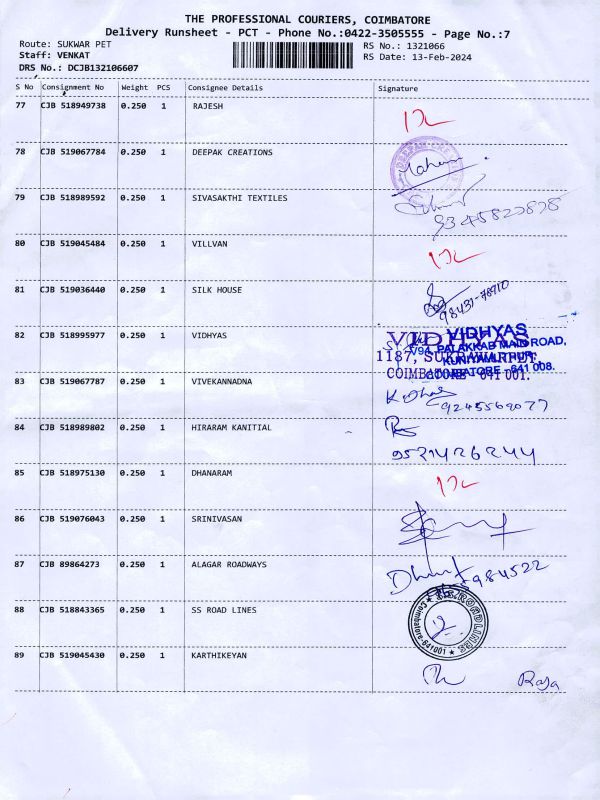 THE PROFESSIONAL COURIERS, COIMBATORE
Delivery Runsheet - PCT - Phone No.:0422-3505555 - Page No.:7
Route: SUKWAR PET
RS No.: 1321066
Staff: VENKAT
RS Date: 13-Feb-2024
DRS No.: DCJB132106607
S No Consignment No Weight PCS Consignee Details Signature
77 CJB 518949738 0.250 1 RAJESH
78 CJB 519067784 0.250 1 DEEPAK CREATIONS
79 CJB 518989592 0.250 1 SIVASAKTHI TEXTILES
9345827878
80 CJB 519045484 0.250 1 VILLVAN
81 CJB 519036440 0.250 1 SILK HOUSE
98431-78910
82 CJB 518995977 0.250 1 VIDHYAS
VIDHYAS
1187, SUKRAWARPET,
COIMBATORE - 641 001.
VIDHYAS
7/94, PALAKKAD MAIN ROAD,
KUNIYAMUTHUR,
COIMBATORE - 641 008.
83 CJB 519067787 0.250 1 VIVEKANNADNA
9245569077
84 CJB 518989802 0.250 1 HIRARAM KANITIAL
9521426244
85 CJB 518975130 0.250 1 DHANARAM
86 CJB 519076043 0.250 1 SRINIVASAN
87 CJB 89864273 0.250 1 ALAGAR ROADWAYS
984522
88 CJB 518843365 0.250 1 SS ROAD LINES
SS ROAD LINES
Coimbatore-641001
89 CJB 519045430 0.250 1 KARTHIKEYAN
Raja